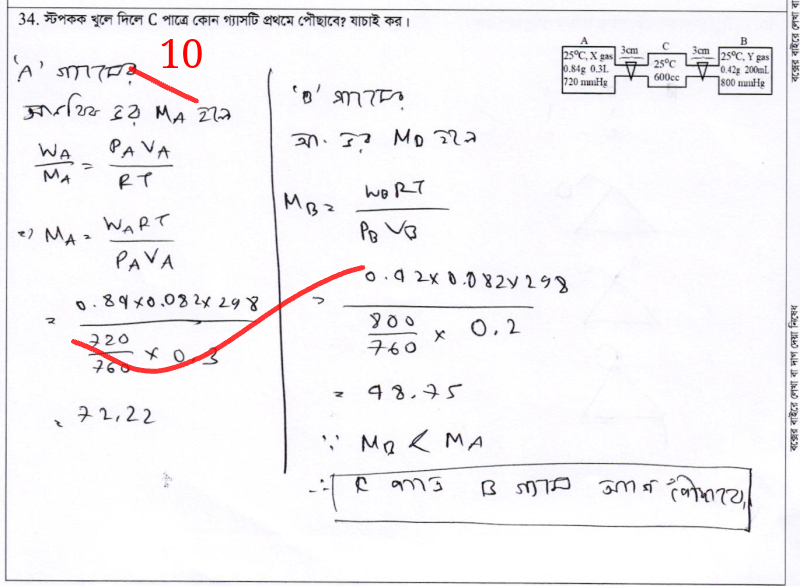 34. স্টপকক খুলে দিলে C পাত্রে কোন গ্যাসটি প্রথমে পৌছাবে? যাচাই কর।
10
A
3cm
C
3cm
B
25°C, X gas
0.84g 0.3L
720 mmHg
25°C
600cc
25°C, Y gas
0.42g 200mL
800 mmHg
'A' গ্যাসের
আনবিক ভর MA হলে
WA/MA = PAVA/RT
=) MA = WART/PAVA
= 0.84×0.082×298 / (720/760 × 0.3)
= 72.22
'B' গ্যাসের
আ. ভর MB হলে
MB = WBRT/PBVB
= 0.42×0.082×298 / (800/760 × 0.2)
= 48.75
∵ MB < MA
∴ C পাত্রে B গ্যাস আগে পৌঁছাবে,
বক্সের বাইরে লেখা বা দাগ দেয়া নিষেধ